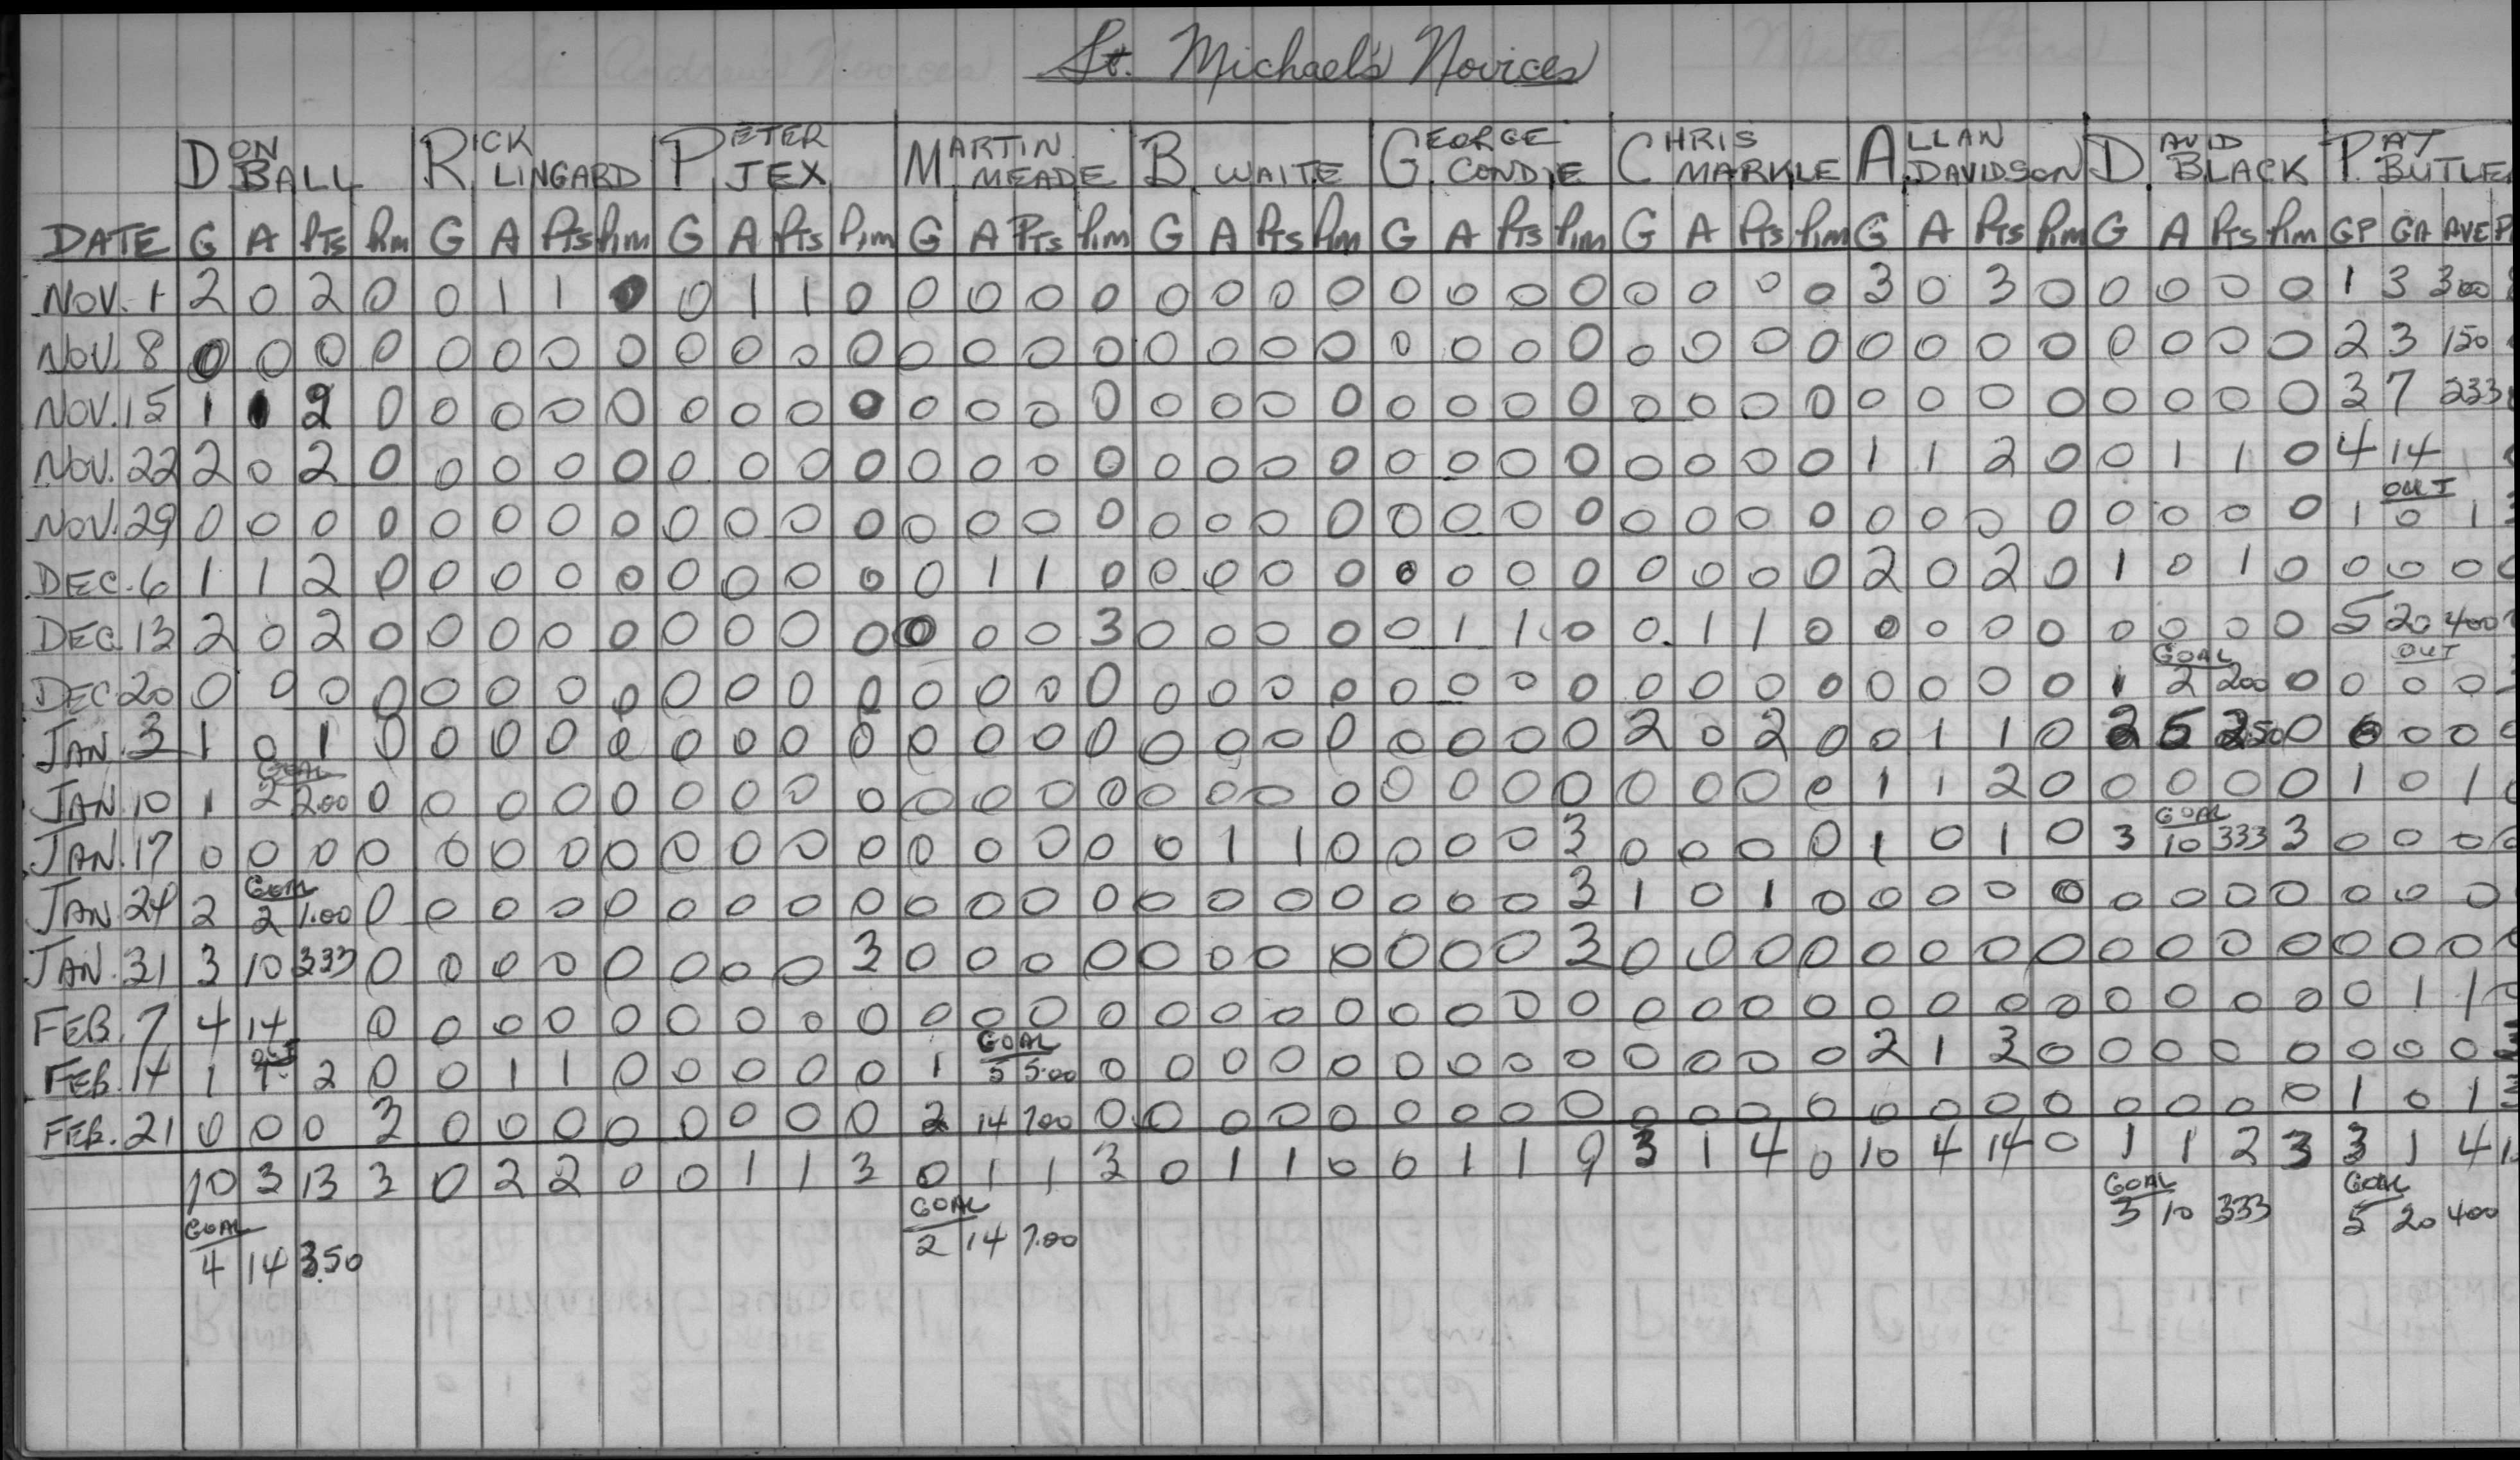 St. Michael's Novices
DON BALL RICK LINGARD PETER JEX MARTIN MEADE B. WAITE GEORGE CONDIE CHRIS MARKLE ALLAN DAVIDSON DAVID BLACK PAT BUTLE
DATE G A Pts Pim G A Pts Pim G A Pts Pim G A Pts Pim G A Pts Pim G A Pts Pim G A Pts Pim G A Pts Pim G A Pts Pim GP GA AVE P
NOV. 1 2 0 2 0 0 1 1 0 0 1 1 0 0 0 0 0 0 0 0 0 0 0 0 0 0 0 0 0 3 0 3 0 0 0 0 0 1 3 300
NOV. 8 0 0 0 0 0 0 0 0 0 0 0 0 0 0 0 0 0 0 0 0 0 0 0 0 0 0 0 0 0 0 0 0 0 0 0 0 2 3 150
NOV. 15 1 1 2 0 0 0 0 0 0 0 0 0 0 0 0 0 0 0 0 0 0 0 0 0 0 0 0 0 0 0 0 0 0 0 0 0 3 7 233
NOV. 22 2 0 2 0 0 0 0 0 0 0 0 0 0 0 0 0 0 0 0 0 0 0 0 0 0 0 0 0 1 1 2 0 0 1 1 0 4 14
OUT
NOV. 29 0 0 0 0 0 0 0 0 0 0 0 0 0 0 0 0 0 0 0 0 0 0 0 0 0 0 0 0 0 0 0 0 0 0 0 0 1 0 1
DEC. 6 1 1 2 0 0 0 0 0 0 0 0 0 0 1 1 0 0 0 0 0 0 0 0 0 0 0 0 0 2 0 2 0 1 0 1 0 0 0 0
DEC. 13 2 0 2 0 0 0 0 0 0 0 0 0 0 0 0 3 0 0 0 0 0 1 1 0 0 1 1 0 0 0 0 0 0 0 0 0 5 20 400
GOAL OUT
DEC 20 0 0 0 0 0 0 0 0 0 0 0 0 0 0 0 0 0 0 0 0 0 0 0 0 0 0 0 0 0 0 0 0 1 2 200 0 0 0 0
JAN. 3 1 0 1 0 0 0 0 0 0 0 0 0 0 0 0 0 0 0 0 0 0 0 0 0 2 0 2 0 0 1 1 0 2 5 250 0 0 0 0
GOAL
JAN. 10 1 2 2.00 0 0 0 0 0 0 0 0 0 0 0 0 0 0 0 0 0 0 0 0 0 0 0 0 0 1 1 2 0 0 0 0 0 1 0 1
GOAL
JAN. 17 0 0 0 0 0 0 0 0 0 0 0 0 0 0 0 0 0 1 1 0 0 0 0 3 0 0 0 0 1 0 1 0 3 10 333 3 0 0 0
GOAL
JAN. 24 2 2 1.00 0 0 0 0 0 0 0 0 0 0 0 0 0 0 0 0 0 0 0 0 3 1 0 1 0 0 0 0 0 0 0 0 0 0 0 0
JAN. 31 3 10 333 0 0 0 0 0 0 0 0 3 0 0 0 0 0 0 0 0 0 0 0 3 0 0 0 0 0 0 0 0 0 0 0 0 0 0 0
FEB. 7 4 14 0 0 0 0 0 0 0 0 0 0 0 0 0 0 0 0 0 0 0 0 0 0 0 0 0 0 0 0 0 0 0 0 0 0 1 1
OUT GOAL
FEB. 14 1 1 2 0 0 1 1 0 0 0 0 0 1 5 5.00 0 0 0 0 0 0 0 0 0 0 0 0 0 2 1 3 0 0 0 0 0 0 0 0 3
FEB. 21 0 0 0 3 0 0 0 0 0 0 0 0 2 14 700 0 0 0 0 0 0 0 0 0 0 0 0 0 0 0 0 0 0 0 0 0 1 0 1 3
10 3 13 3 0 2 2 0 0 1 1 3 0 1 1 3 0 1 1 0 0 1 1 9 3 1 4 0 10 4 14 0 1 1 2 3 3 1 4
GOAL GOAL GOAL GOAL
4 14 3.50 2 14 7.00 3 10 333 5 20 400